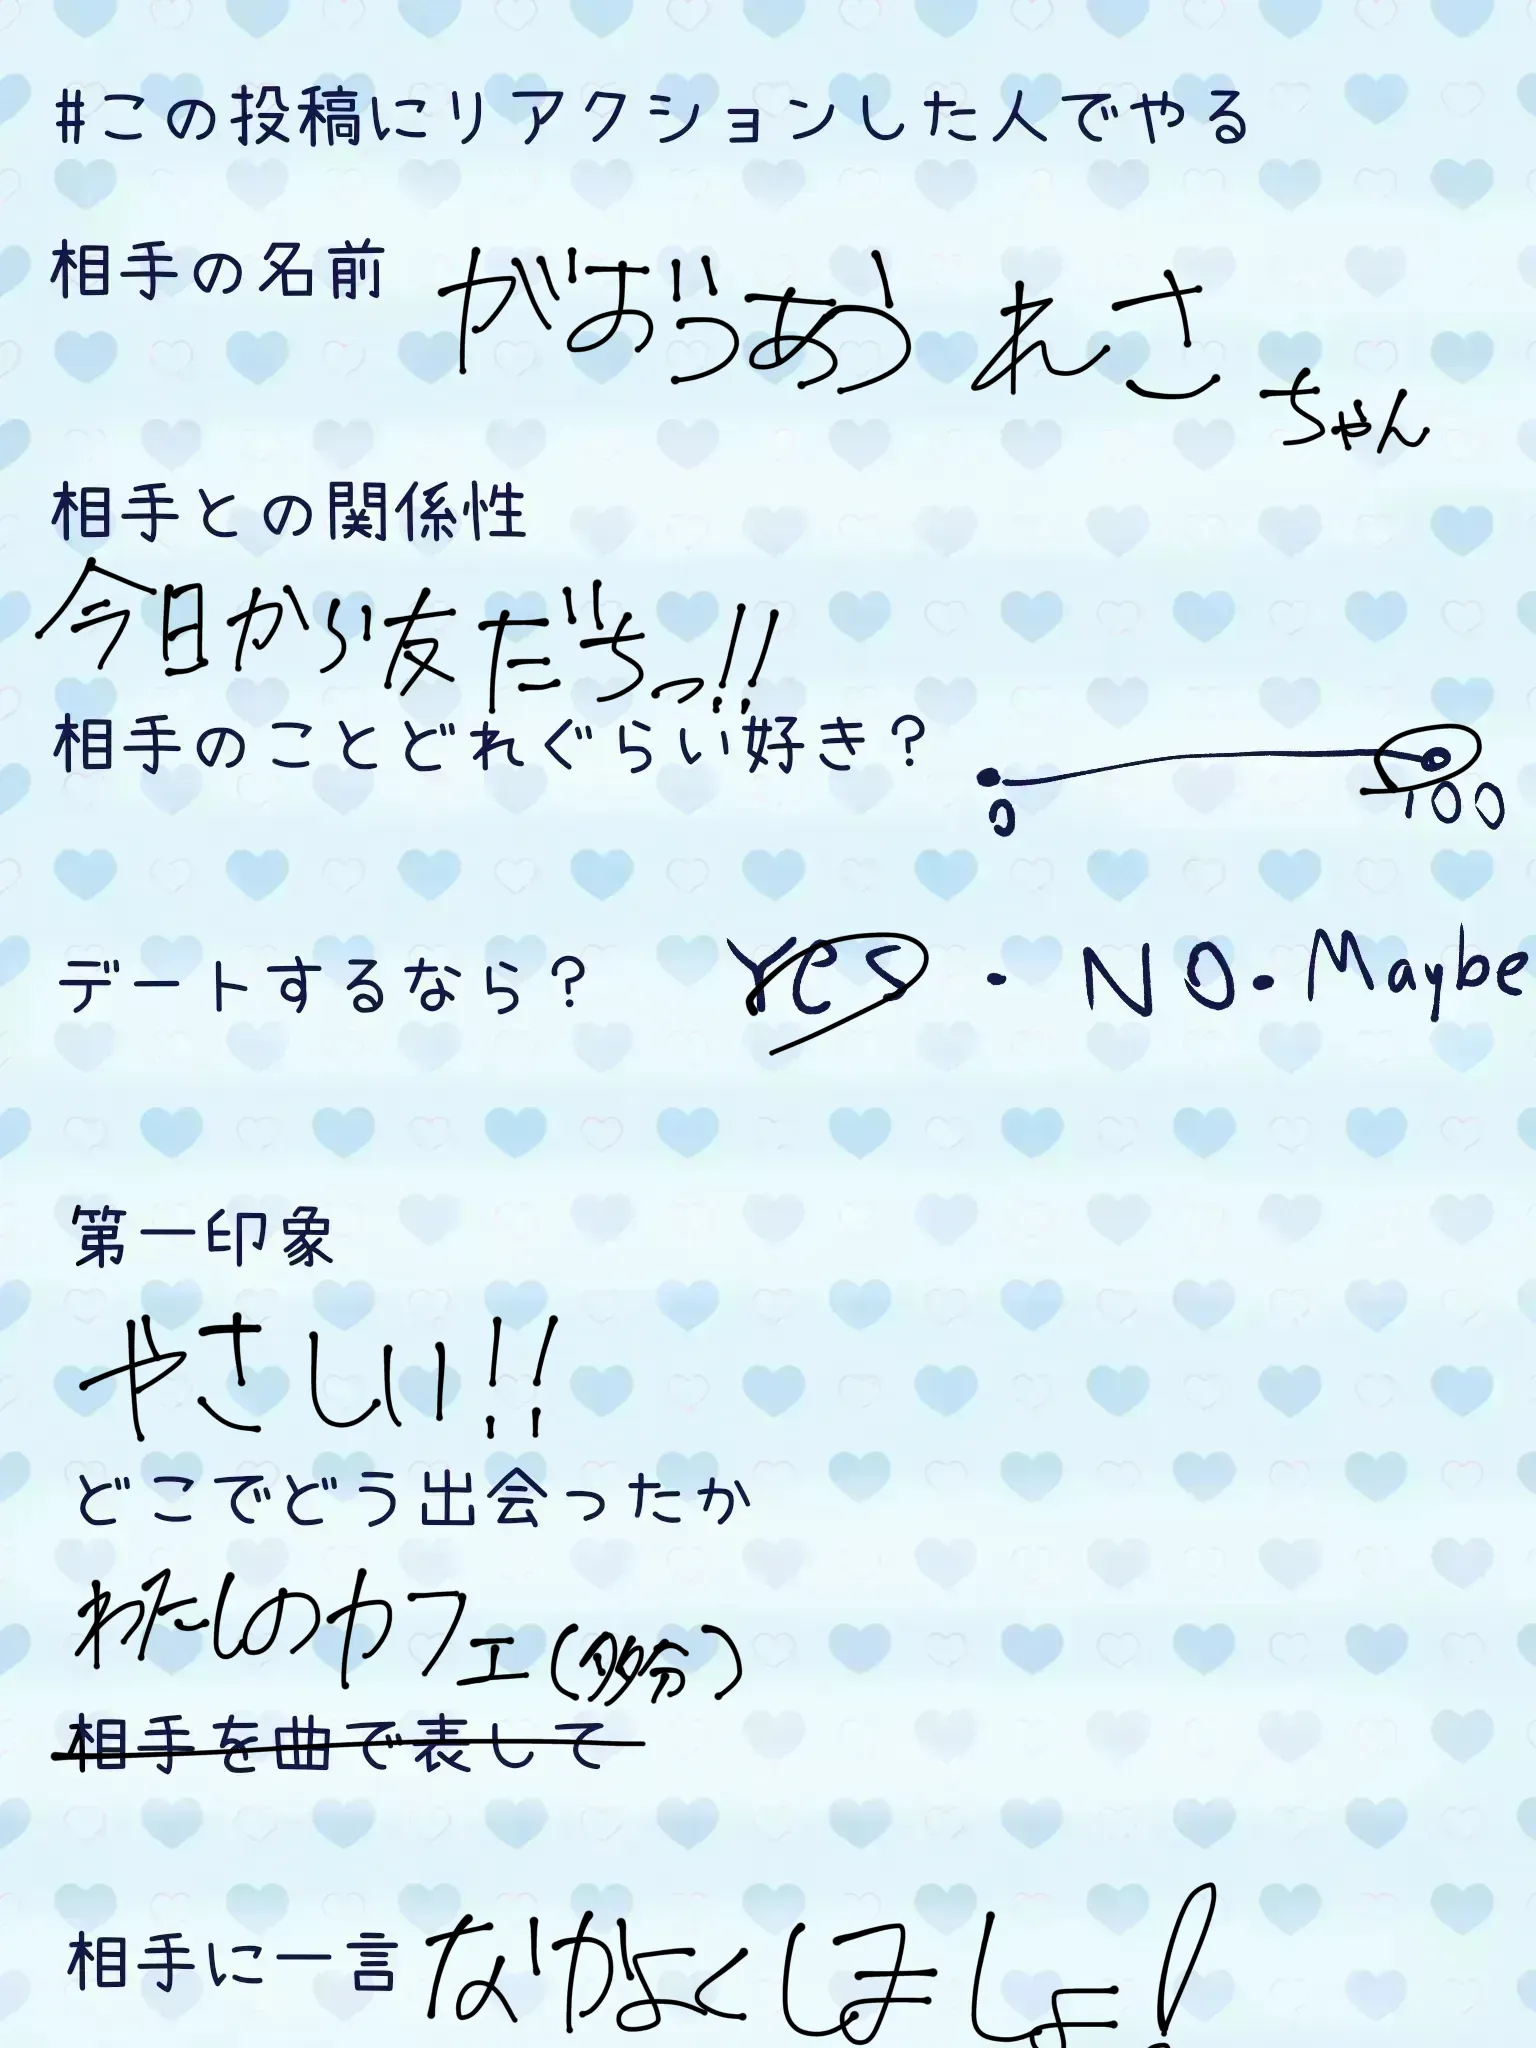 #この投稿にリアクションした人でやる
相手の名前
れさ
ちゃん
相手との関係性
今日から友だちっ!!
相手のことどれぐらい好き?
0 100
デートするなら? Yes・NO・Maybe
第一印象
やさしい!!
どこでどう出会ったか
わたしのカフェ(多分)
相手を曲で表して
相手に一言 なかよくしましょ!